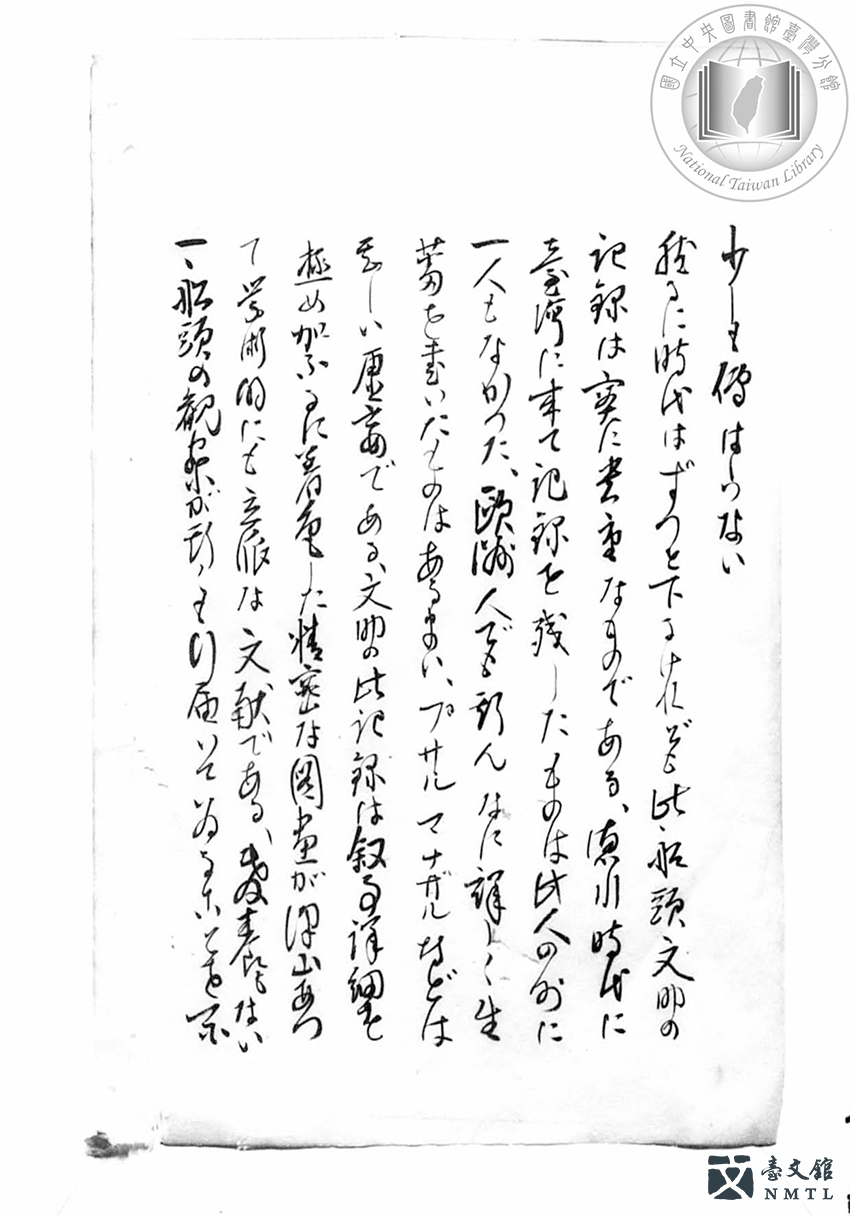 少しも傷はつない
然るに時代はずつと下るけれども此船頭文助の
記録は実に貴重なものである、徳川時代に
臺灣に来て記録を残したものは此人の外に
一人もなかつた、欧洲人でも斯んなに詳しく生
蕃を書いたものはあるまい、プサルマナザルなどは
甚しい虚妄である、文助の此記録は叙事詳細を
極め加ふるに着色した精密な図画が沢山あつ
て学術的にも立派な文献である、教養もない
一船頭の観察が斯くも行届いて
國立中央圖書館臺灣分館
National Taiwan Library
臺文館
NMTL